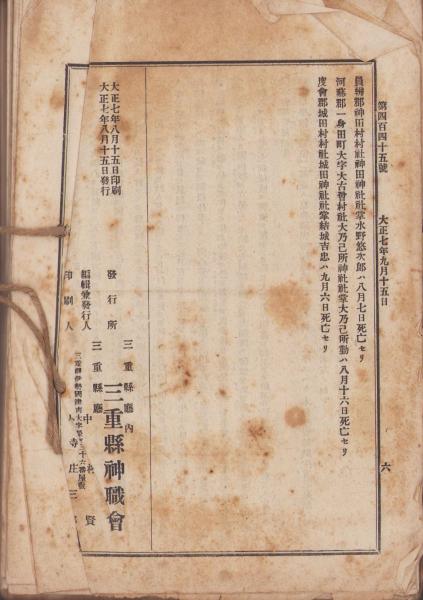 第四百四十五號 大正七年九月十五日 六
員辨郡神田村村社神田神社社掌水野悠次郎ハ八月七日死亡セリ
河藝郡一身田町大字大古曾村社大乃己所神社社掌大乃己所勤ハ八月十六日死亡セリ
度會郡城田村村社城田神社社掌結城吉忠ハ九月六日死亡セリ
大正七年八月十五日印刷
大正七年八月十五日發行
發行所 三重縣廳內 三重縣神職會
編輯兼發行人 三重縣廳 中 賢
三重縣伊勢國津市大字
印刷人 寺庄三